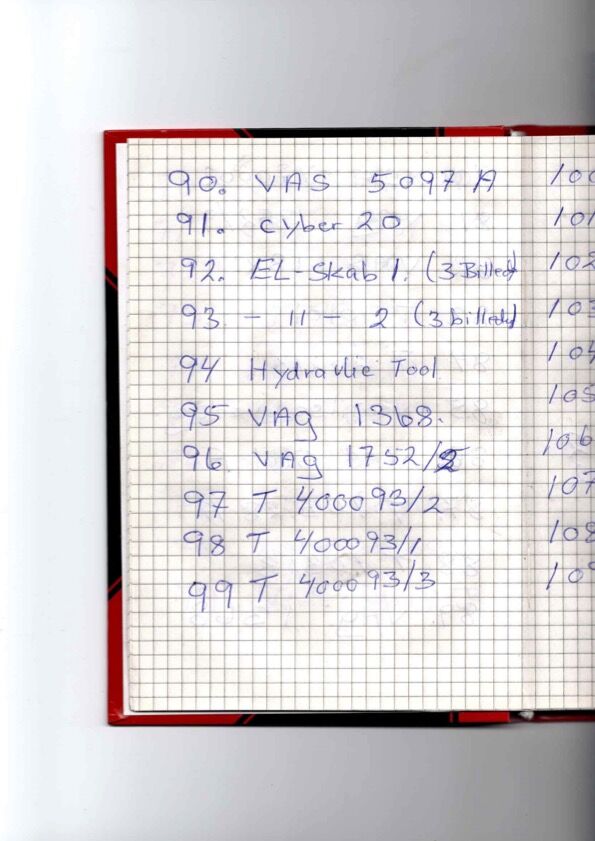 90. VAS 5097 A
91. Cyber 20
92. EL-Skab 1. (3 Billeder)
93 - 11 - 2 (3 billeder)
94 Hydraulic Tool
95 VAG 1368.
96. VAG 1752/
97 T 400093/2
98 T 400093/1
99 T 400093/3
100
101
102
103
104
105
106
107
108